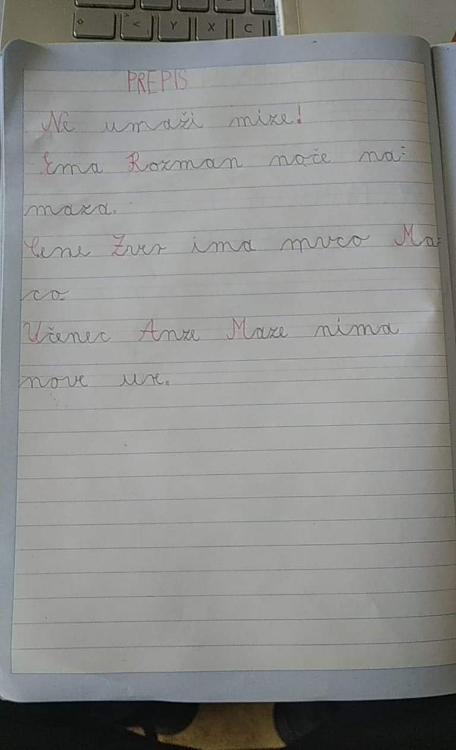 < Y X C
PREPIS
Ne umaži mize!
Ema Rozman noče na=
maza.
Cene Zver ima muco Ma=
co.
Učenec Anze Maze nima
nove ure.